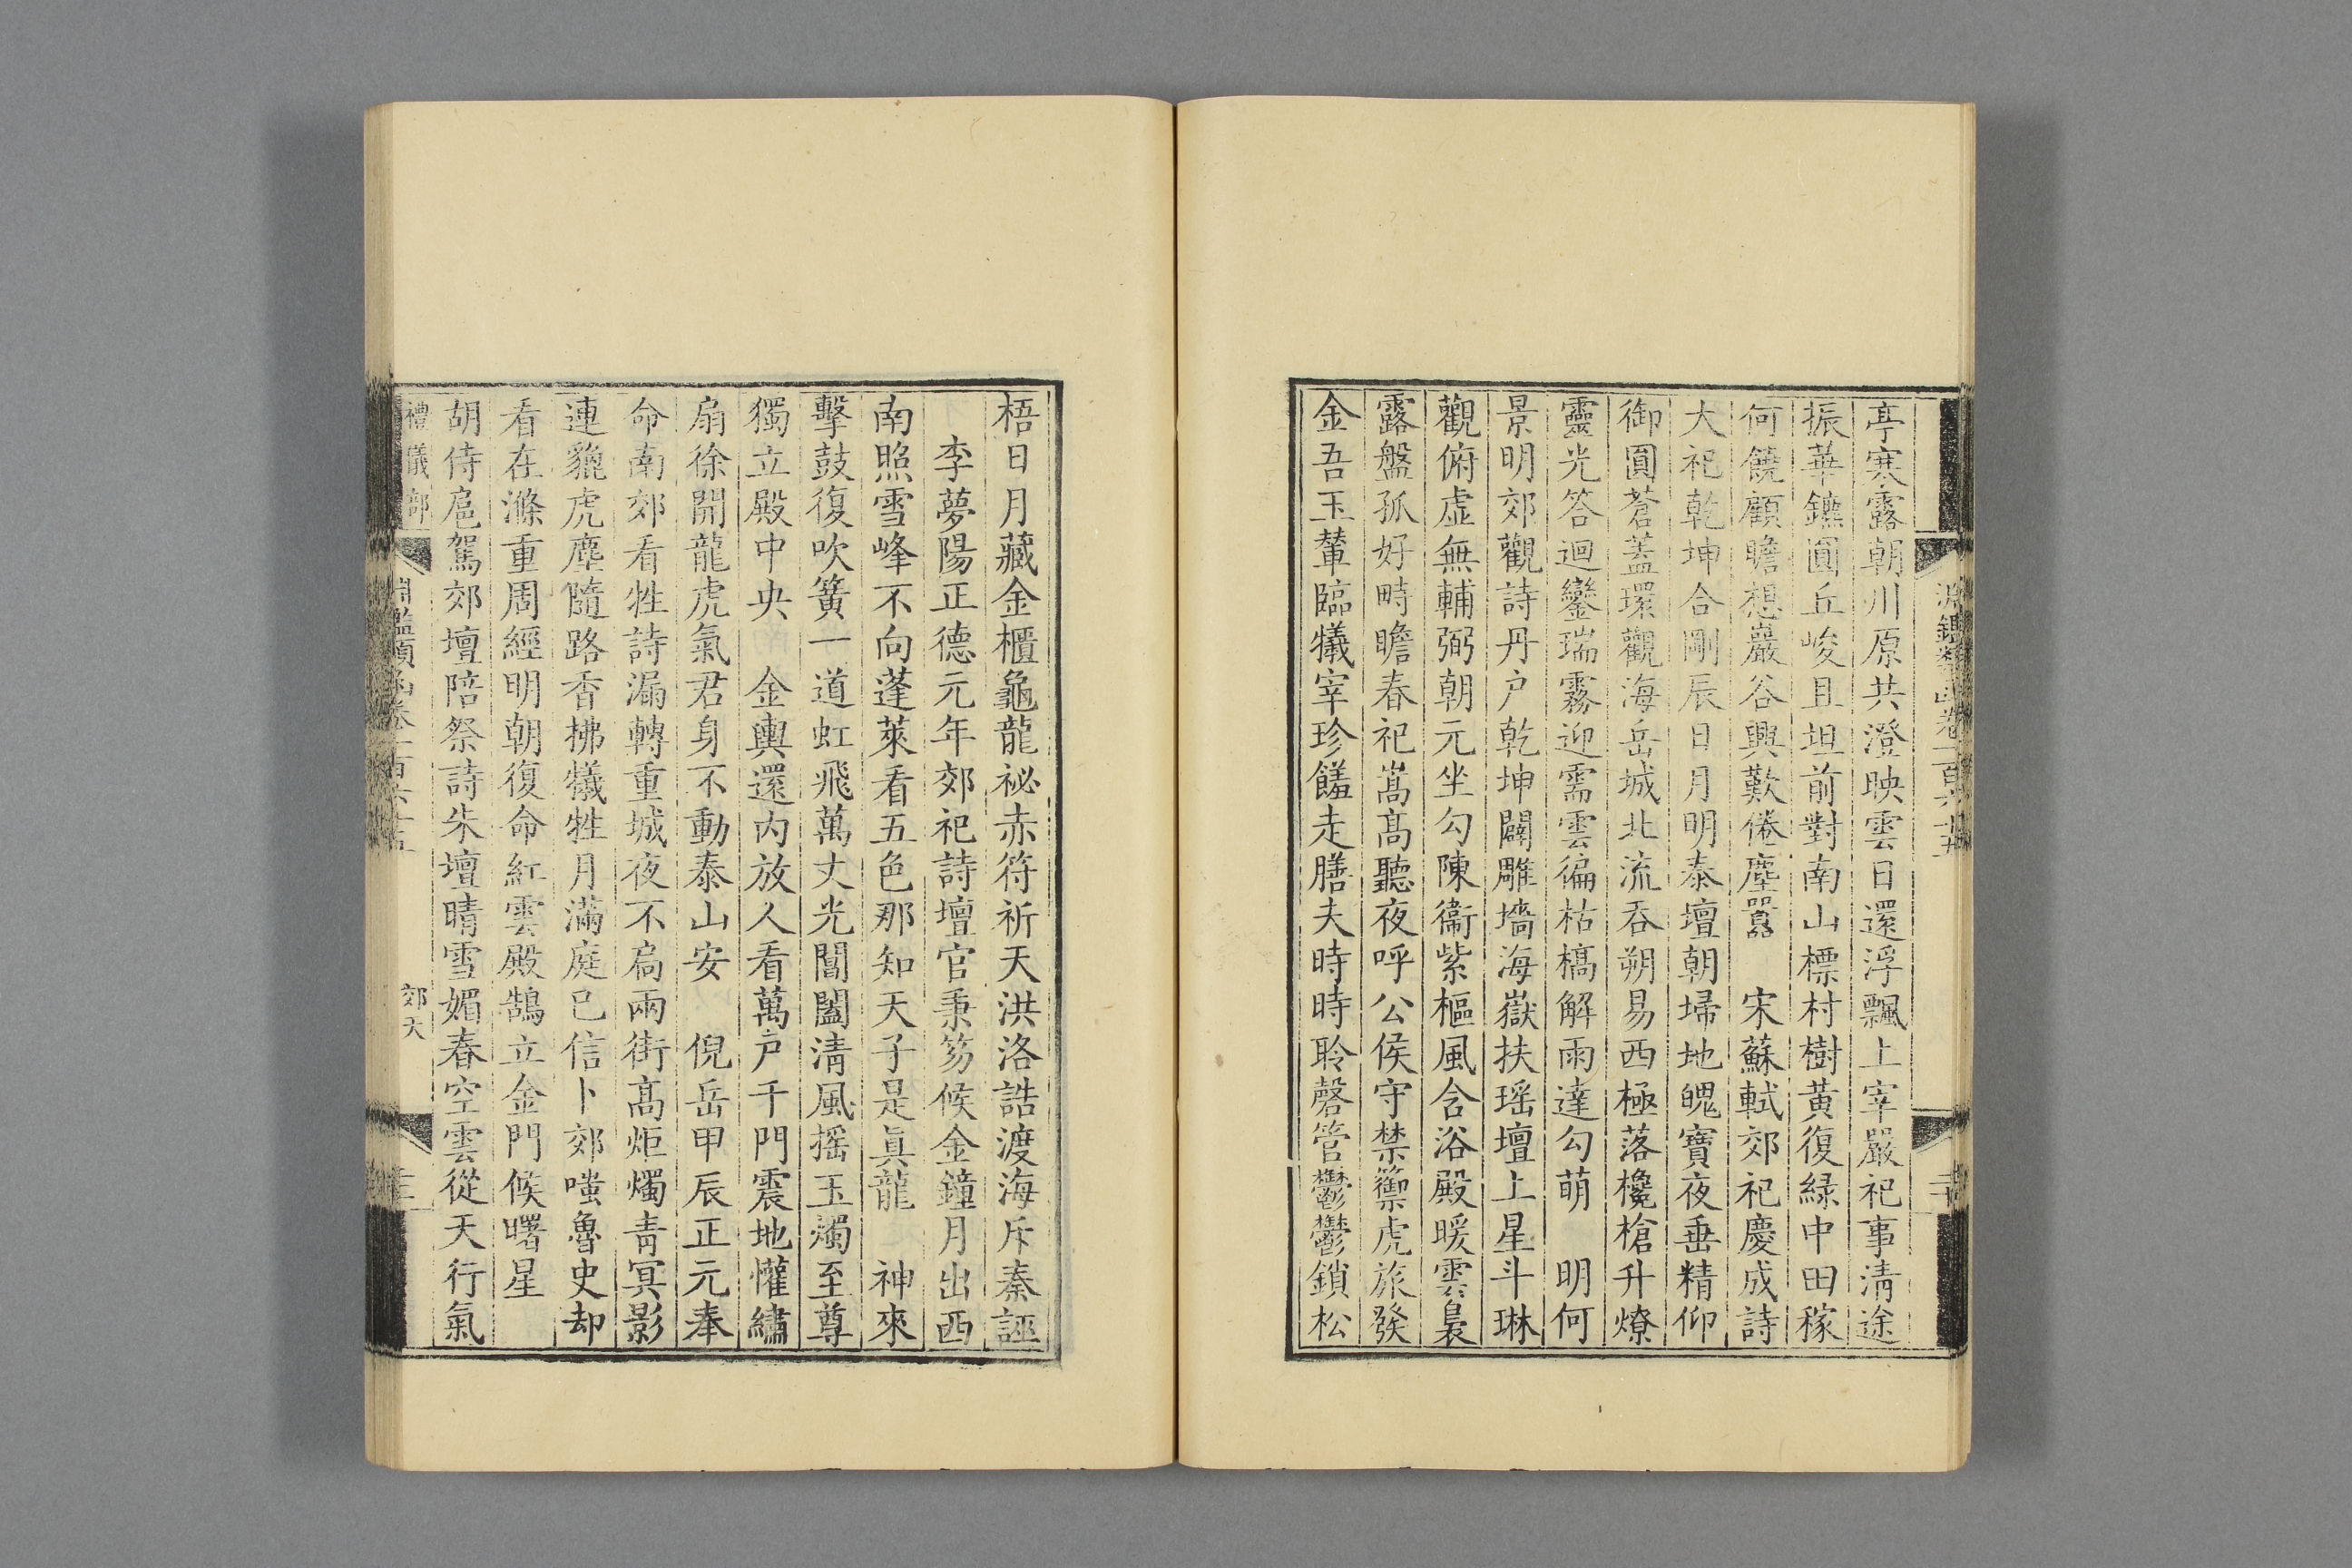 亭寒露朝川原共澄映雲日還浮飄上宰嚴祀事清途
振華鑣圓丘峻且坦前對南山標村樹黃復緑中田稼
何饒顧瞻想巖谷興歎倦塵囂　宋蘇軾郊祀慶成詩
大祀乾坤合剛辰日月明泰壇朝埽地䰟寶夜垂精仰
御圓蒼蓋環觀海岳城北流吞朔易西極落欃槍升燎
靈光答迴鑾瑞霧迎需雲徧枯槁解雨達勾萌　明何
景明郊觀詩丹户乾坤闢雕墻海嶽扶瑶壇上星斗琳
觀俯虚無輔弼朝元坐勾陳衞紫樞風含浴殿暖雲裊
露盤孤好畤瞻春祀嵩髙聽夜呼公侯守禁籞虎旅發
金吾玉輦臨犧宰珍饈走膳夫時時聆磬管鬱鬱鎖松
梧日月藏金櫃龜龍祕赤符祈天洪洛誥渡海斥秦誣
李夢陽正德元年郊祀詩壇官秉笏候金鐘月出西
南照雪峰不向蓬萊看五色那知天子是眞龍　神來
擊鼓復吹簧一道虹飛萬丈光閶闔清風摇玉燭至尊
獨立殿中央　金輿還内放人看萬户千門震地懽繡
扇徐開龍虎氣君身不動泰山安　倪岳甲辰正元奉
命南郊看牲詩漏轉重城夜不扃兩街髙炬燭青冥影
連貔虎塵隨路香拂犧牲月滿庭已信卜郊嗤魯史却
看在滌重周經明朝復命紅雲殿鵠立金門候曙星
胡侍扈駕郊壇陪祭詩朱壇晴雪媚春空雲從天行氣
禮儀部
淵鑑類函卷一百六十五
郊天